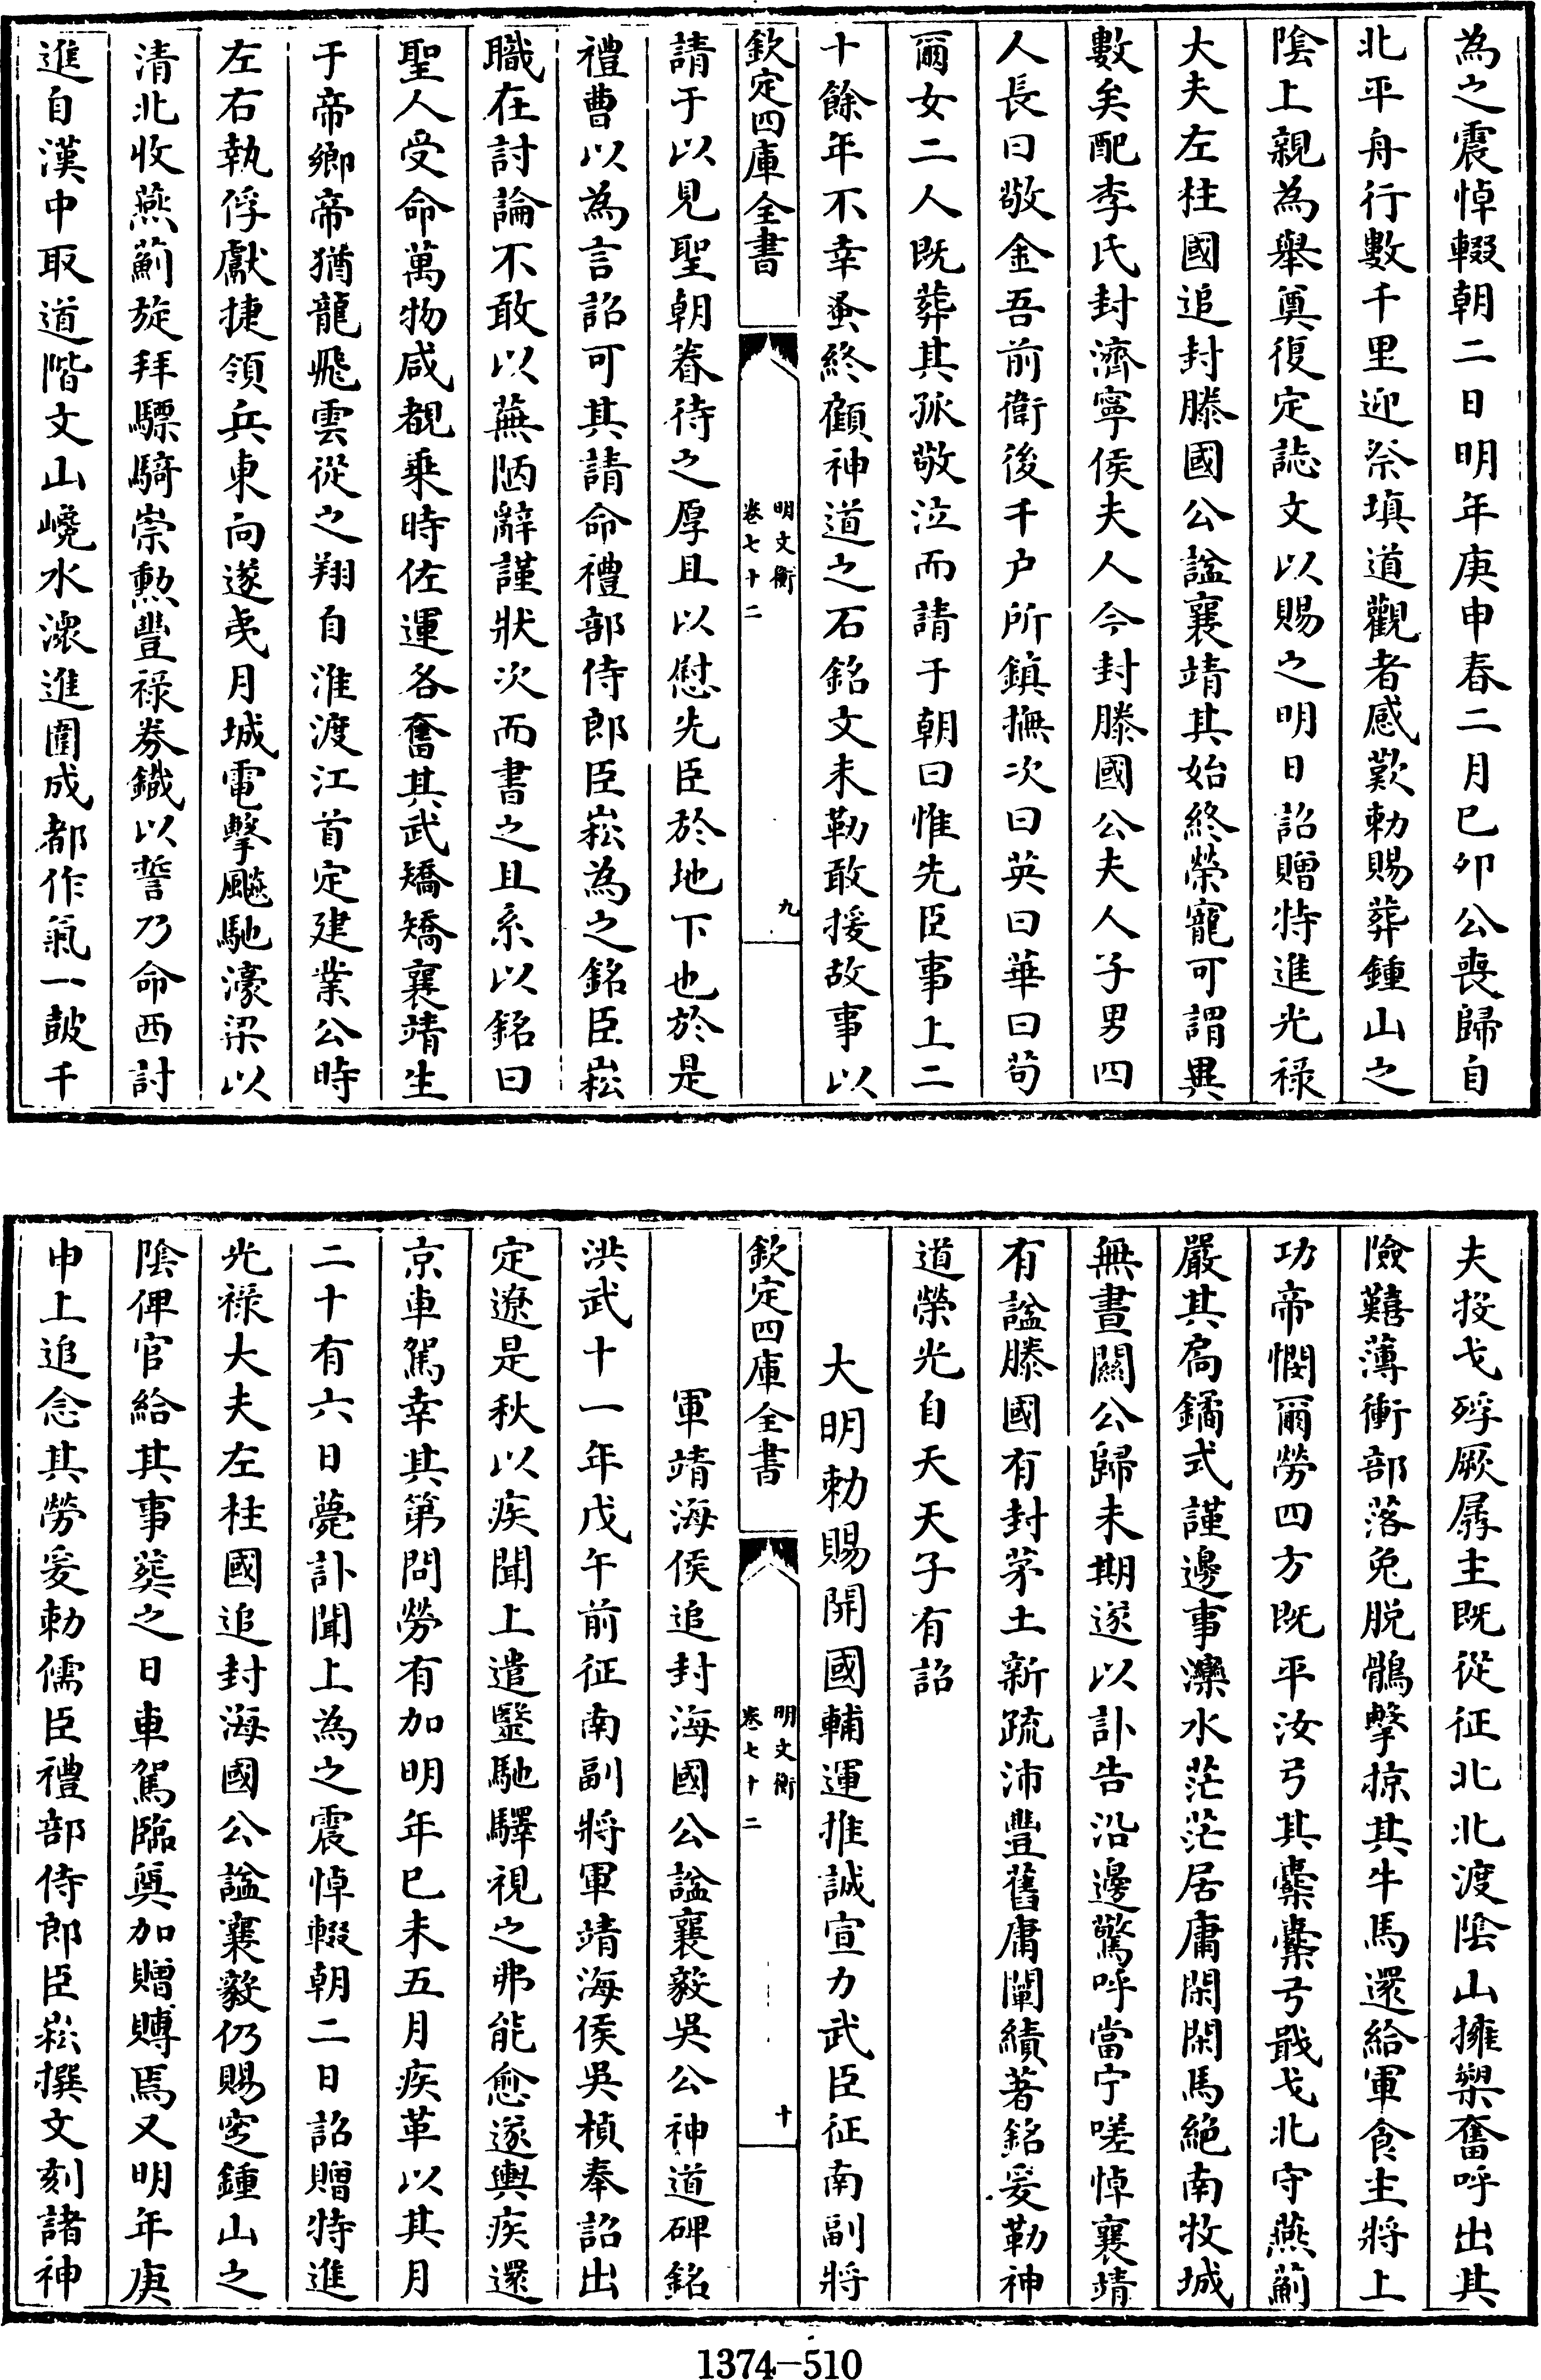 為之震悼輟朝二日明年庚申春二月巳卯公喪歸自
北平舟行數千里迎祭填道觀者感歎勅賜葬鍾山之
陰上親為舉奠復定誌文以賜之明日詔贈特進光祿
大夫左柱國追封滕國公諡襄靖其始終榮寵可謂異
數矣配李氏封濟寧侯夫人今封滕國公夫人子男四
人長曰敬金吾前衛後千户所鎮撫次曰英曰華曰苟
爾女二人既葬其孤敬泣而請于朝曰惟先臣事上二
十餘年不幸蚤終顧神道之石銘文未勒敢援故事以
欽定四庫全書
明文衡
卷七十二
九
請于以見聖朝眷待之厚且以慰先臣於地下也於是
禮曹以為言詔可其請命禮部侍郎臣崧為之銘臣崧
職在討論不敢以蕪陋辭謹狀次而書之且系以銘曰
聖人受命萬物咸覩乘時佐運各奮其武矯矯襄靖生
于帝鄉帝猶龍飛雲從之翔自淮渡江首定建業公時
左右執俘獻捷領兵東向遂夷月城電擊飈馳濠梁以
清北收燕薊旋拜驃騎崇勲豐祿券鐡以誓乃命西討
進自漢中取道階文山嶢水濴進圍成都作氣一鼓千
夫投戈殍厥孱主既從征北北渡陰山擁槊奮呼出其
險囏薄衝部落兔脱鶻擊掠其牛馬還給軍食主將上
功帝憫爾勞四方既平汝弓其櫜櫜弓戢戈北守燕薊
嚴其扃鐍式謹邊事灤水茫茫居庸閑閑馬絶南牧城
無晝關公歸未期遂以訃告沿邊驚呼當宁嗟悼襄靖
有諡滕國有封茅土新疏沛豐舊庸闡績著銘爰勒神
道榮光自天天子有詔
大明勅賜開國輔運推誠宣力武臣征南副將
欽定四庫全書
明文衡
卷七十二
十
軍靖海侯追封海國公諡襄毅吳公神道碑銘
洪武十一年戊午前征南副將軍靖海侯吳楨奉詔出
定遼是秋以疾聞上遣毉馳驛視之弗能愈遂輿疾還
京車駕幸其第問勞有加明年巳未五月疾革以其月
二十有六日薨訃聞上為之震悼輟朝二日詔贈特進
光祿大夫左柱國追封海國公諡襄毅仍賜窆鍾山之
陰俾官給其事葬之日車駕臨奠加贈賻焉又明年庚
申上追念其勞爰勅儒臣禮部侍郎臣崧撰文刻諸神
1374—510